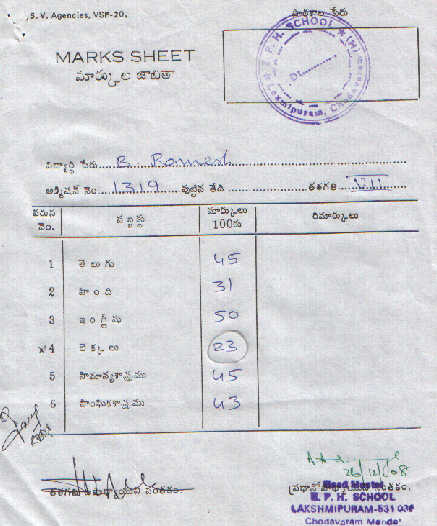 S. V. Agencies, VSP-20.
పాఠశాల పేరు
MARKS SHEET
మార్కుల జాబితా
M. P. H. SCHOOL
Laxmipuram, Chodavaram
విద్యార్థి పేరు B. Ramesh
అడ్మిషన్ నెం. 1319 పుట్టిన తేది తరగతి VII
వరుస నెం. సబ్జెక్టు మార్కులు 100కు రిమార్కులు
1 తెలుగు 45
2 హిందీ 31
3 ఇంగ్లీషు 50
x 4 లెక్కలు 23
5 సామాన్యశాస్త్రము 45
6 సాంఘికశాస్త్రము 43
26/12/08
తరగతి ఉపాధ్యాయుని సంతకం.
ప్రధానోపాధ్యాయుని సంతకం.
Head Master
M. P. H. SCHOOL
LAKSHMIPURAM-531 036
Chodavaram Mandal